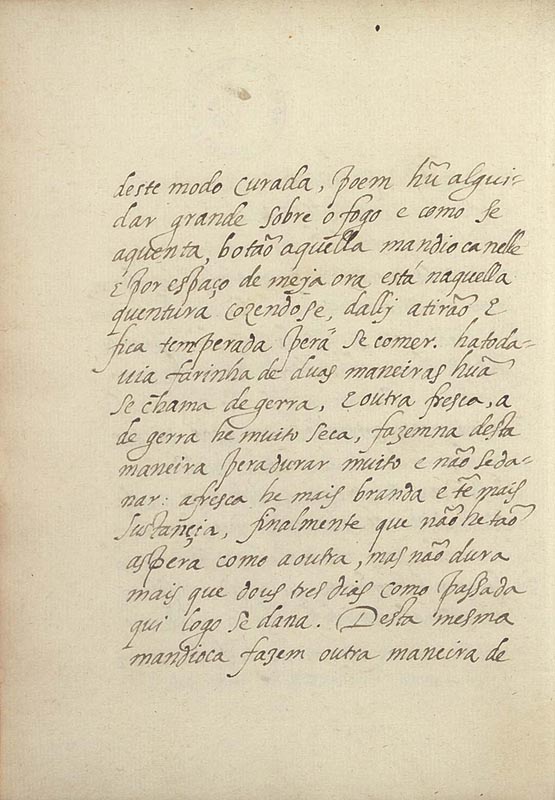 deste modo curada, poem hũ algui-
dar grande sobre o fogo e como se
aquenta, botão aquella mandioca nelle
E por espaço de meja ora esta naquella
quentura cozendose, dallj atirão, E
fica temperada perã se comer. ha toda-
uia farinha de duas maneiras huã
se chama de gerra, E outra fresca, a
de gerra he muito seca, fazemna desta
maneira pera durar muito e não se da-
nar: a fresca he mais branda e tẽ mais
sustançia, finalmente que não he tão
aspera como a outra, mas não dura
mais que dous tres dias como passa da
qui logo se dana. Desta mesma
mandioca fazem outra maneira de